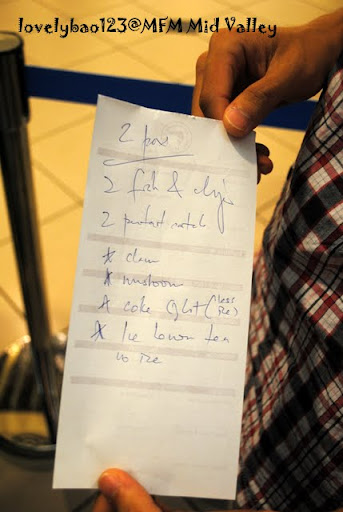 lovelybao123@MFM Mid Valley
2 pax
2 fish & chips
2 perfect match
* clam
* mushroom
* coke light (less ice)
* Ice lemon tea
no ice